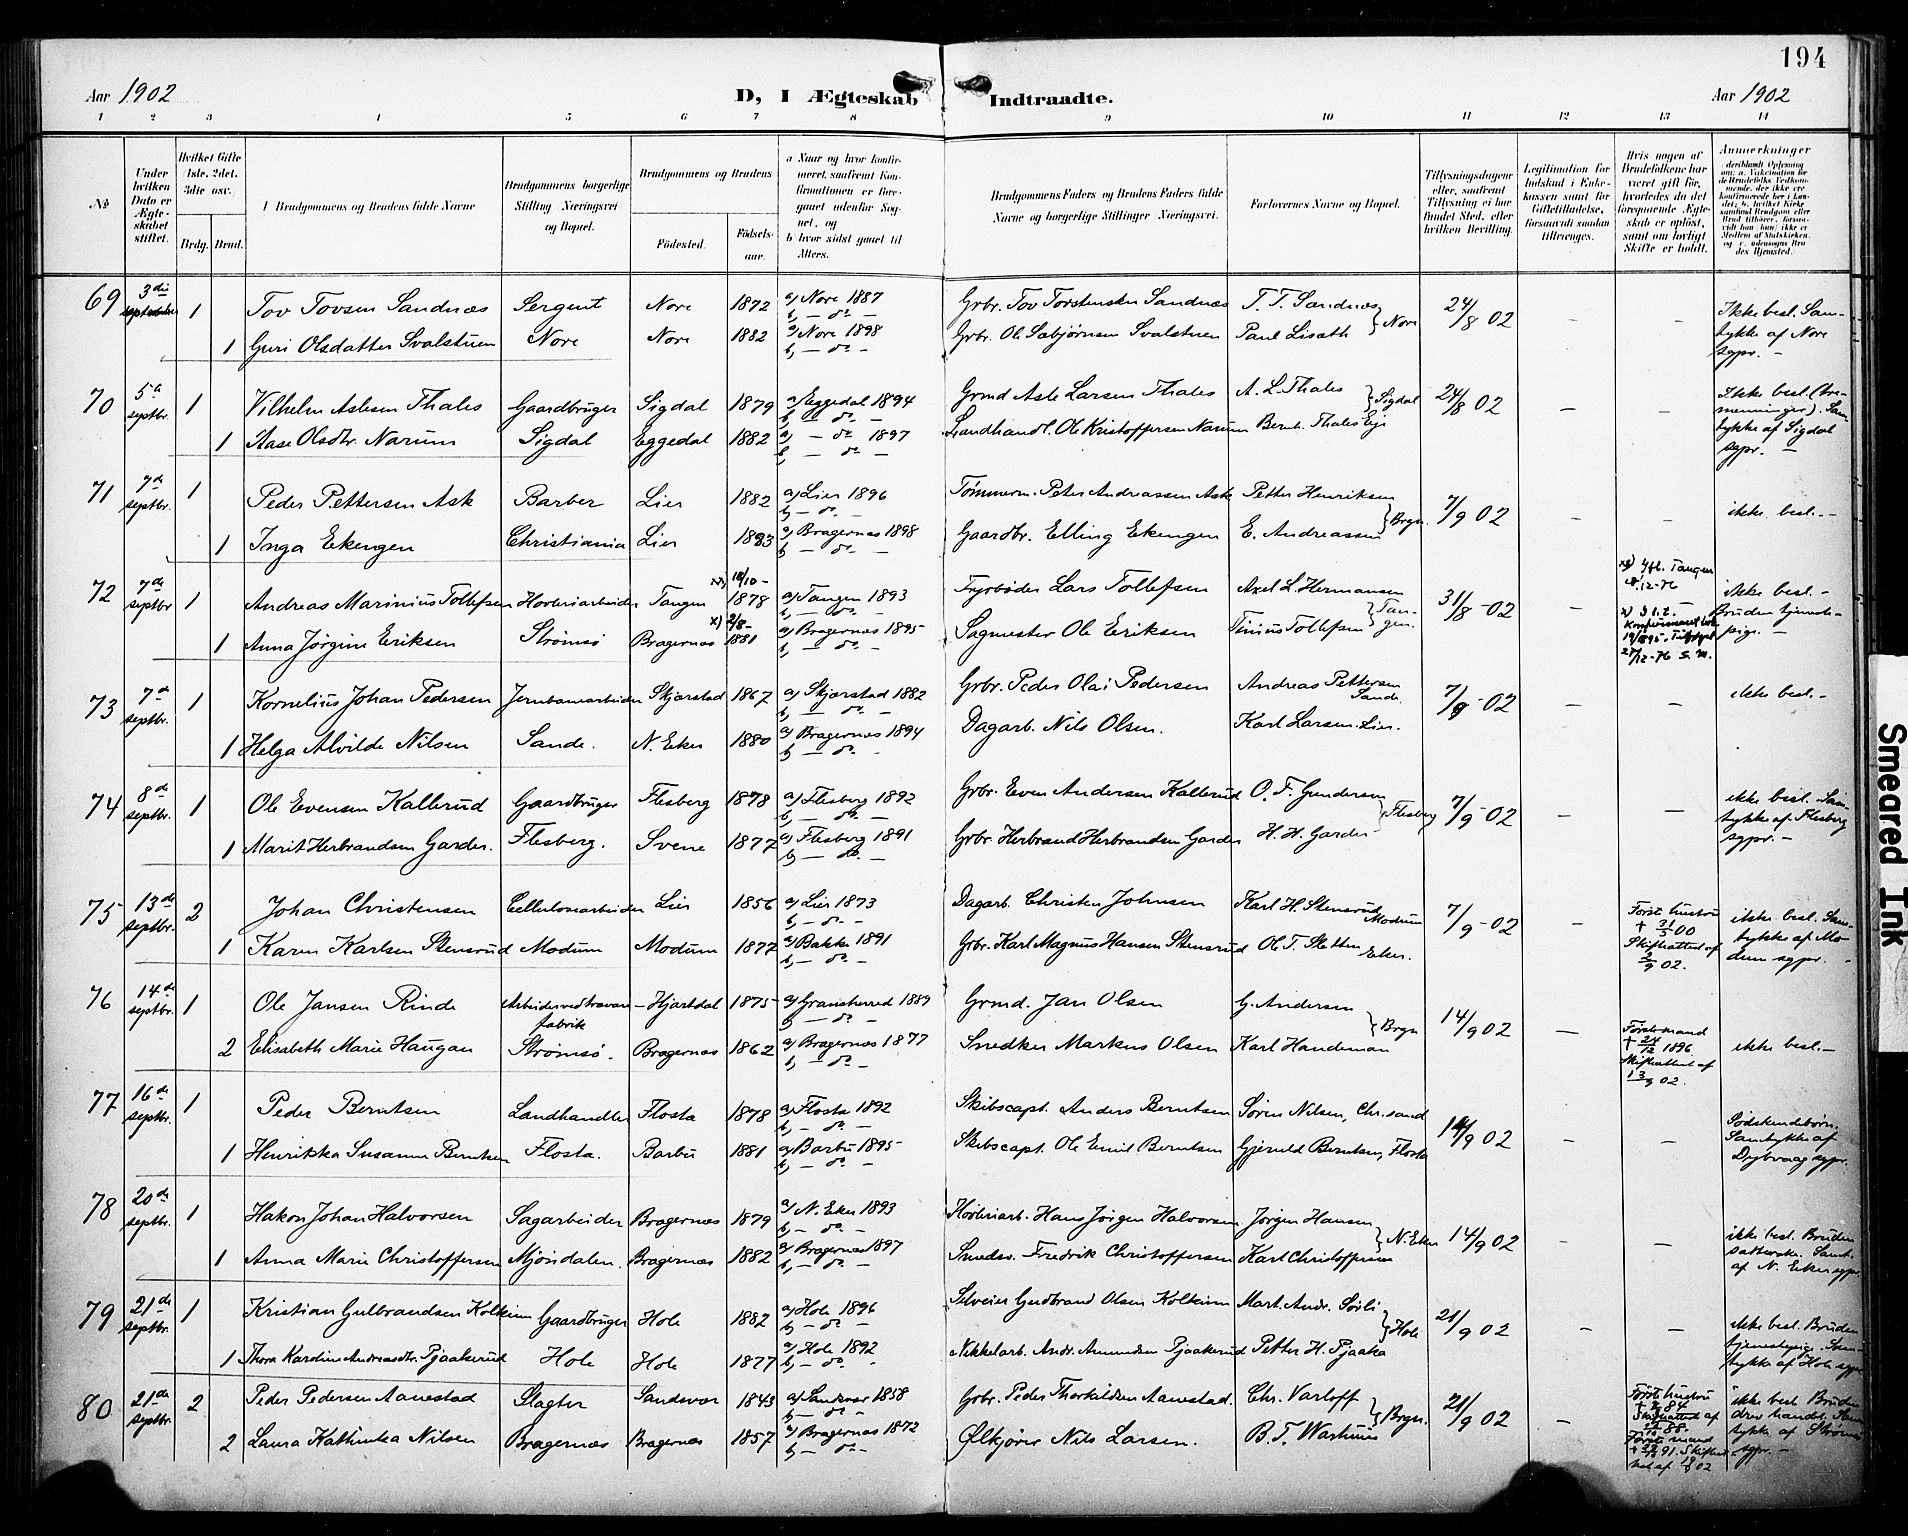 194
Aar 1902
D, I Ægteskab Indtraadte.
Aar 1902
1 2 3 4 5 6 7 8 9 10 11 12 13 14
No
Under hvilken Dato er Ægteskabet stiftet.
Hvilket Gifte 1ste, 2det, 3die osv.
Brdg. Brud.
Brudgommens og Brudens fulde Navne
Brudgommens borgerlige Stilling Næringsvei og Bopæl.
Brudgommens og Brudens
Fødested.
Fødselsaar.
a Naar og hvor konfirmeret, saafremt Konfirmationen er foregaaet udenfor Sognet, og
b hvor sidst gaaet til Alters.
Brudgommens Faders og Brudens Faders fulde Navne og borgerlige Stillinger Næringsvei.
Forlovernes Navne og Bopæl.
Tillysningsdagene eller, saafremt Tillysning ei har fundet Sted, efter hvilken Bevilling.
Legitimation for Indskud i Enkekassen samt for Giftetilladelse, forsaavidt saadan tiltrænges.
Hvis nogen af Brudefolkene har været gift før, hvorledes da det foregaaende Ægteskab er opløst, samt om lovligt Skifte er holdt.
Anmerkninger
69 3die september 1 Tov Tovsen Sandnæs Sergent Nore 1872 a, Nore 1887 b, — do — Grbr. Tov Torstensen Sandnæs T. T. Sandnæs } Nore 24/8 02 — — Ikke besl. Samtykke af Nore sgpr. —
1 Guri Olsdatter Svalstuen Nore Nore 1882 a, Nore 1898 b, — do — Grbr. Ole Sebjørnsen Svalstuen Paul Liseth
70 5te septbr. 1 Vilhelm Aslesen Thales Gaardbruger Sigdal 1879 a, Eggedal 1894 b, — do — Grmd Asle Larsen Thales A. L. Thales } Sigdal 24/8 02 — — Ikke besl. Samtykke af Sigdal sgpr. —
1 Aase Olsdtr. Narum Sigdal Eggedal 1882 a, — do — 1897 b, — do — Landhandl. Ole Kristoffersen Narum Bernt Thales Eje
71 7de septbr. 1 Peder Pettersen Ask Barber Lier 1882 a, Lier 1896 b, — do — Tømmerm. Peter Andreassen Ask Petter Henriksen } Brgn. 7/9 02 — — ikke besl. —
1 Inga Ekengen Christiania Lier 1883 a, Bragernæs 1898 b, — do — Gaardbr. Elling Ekengen E. Andreassen
72 7de septbr 1 Andreas Marinius Tollefsen Høvleriarbeider Tangen 18/10 - 1878 a, Tangen 1893 b, — do — Fyrbøder Lars Tollefsen Axel L. Hermansen } Tangen. 31/8 - 02 — ikke besl. — Bruden tjenestepige. —
1 Anna Jørgine Eriksen Strømsø Bragernæs x) 2/8 - 1881 a, Bragernes 1895 b, — do — Sagmester Ole Eriksen Tinius Tollefsen
73 7de septbr. 1 Kornelius Johan Pedersen Jernbanearbeider Skjærstad 1867 a, Skjærstad 1882 b, — do — Grbr. Peder Olai Pedersen Andreas Pettersen Sande. 7/9 - 02 — — ikke besl. —
1 Helga Alvilde Nilsen Sande. N. Eker 1880 a, Bragernæs 1894 b, — do — Dagarb. Nils Olsen. Karl Larsen. Lier.
74 8de septbr. 1 Ole Evensen Kallerud Gaardbruger Flesberg 1878 a, Flesberg 1892 b, — do — Grbr. Even Andersen Kallerud O. F. Gundersen } Flesberg 7/9 - 02 — — ikke besl. Samtykke af Flesberg sgpr. —
1 Marit Herbrandsen Garder. Flesberg. Svene 1877 a, Flesberg 1891 b, — do — Grbr. Herbrand Herbrandsen Garder H. H. Garder
75 13de septbr. 2 Johan Christensen Cellulosearbeider Lier 1856 a, Lier 1873 b, — do — Dagarb. Christen Johnsen Karl H. Stensrud Modum 7/9 - 02 — Første hustru † 21/5 00 Skifteattest af 2/9 02. ikke besl. Samtykke af Modum sgpr. —
1 Karen Karlsen Stensrud Modum Modum 1877 a, Bakke 1891 b, — do — Grbr. Karl Magnus Hansen Stensrud Ole T. Sletten Eker.
76 14de septbr. 1 Ole Jansen Rinde Arbeider ved travarefabrik Hjartdal 1875 a, Gransherred 1889 b, — do — Grmd. Jan Olsen G. Andersen } Brgn 14/9 02 — Første mand † 24/12 1896 Skifteattest af 13/9 02. ikke besl. —
2 Elisabeth Marie Haugan Strømsø. Bragernæs 1862 a, Bragernes 1877 b, — do — Snedker Markus Olsen Karl Handeman
77 16de septbr. 1 Peder Berntsen Landhandler Flosta 1878 a, Flosta 1892 b, — do — Skibscapt. Anders Berntsen Søren Nilsen, Chr.sand 14/9 02 — — Södskendebörn. Samtykke af Dybvaag sgpr.
1 Henrikka Susanne Berntsen Flosta. Barbu 1881 a, Barbu 1895 b, — do — Skibscapt. Ole Emil Berntsen Gjeruld Berntsen, Flosta
78 20de septbr. 1 Hakon Johan Halvorsen Sagarbeider Bragernæs 1879 a, N. Eker 1893 b, — do — Høvleriarb. Hans Jørgen Halvorsen Jørgen Hansen } N. Eker 14/9 02 — — ikke besl. Bruden Samt. af N. Eker sgpr
1 Anna Marie Christoffersen Mjöndalen. Bragernæs 1882 a, Bragernæs 1897 b, — do — Smedsv. Fredrik Christoffersen Karl Christoffersen
79 21de septbr. 1 Kristian Gulbrandsen Kolkinn Gaardbruger Hole 1882 a, Hole 1896 b, — do — Selveier Gudbrand Olsen Kolkinn Mart. Andr. Sørli } Hole 21/9 02 — — ikke besl. Bruden tjenestepige. Samtykke af Hole sgpr
1 Thora Karoline Andreasdtr. Pjaakerud Hole Hole 1877 a, Hole 1892 b, — do — Nikkelarb. Andr. Amundsen Pjaakerud Petter H. Pjaaka
80 21de septbr. 2 Peder Pedersen Aanestad Slagter Sandsvær 1843 a, Sandsvær 1858 b, — do — Grbr. Peder Thorkildsen Aanestad. Chr. Varloff } Brgn. 21/9 02 — Første hustru Skifteattest af Første mand ikke besl Bruden drev handel. Samtykke af Strømsø sgpr. —
2 Laura Kathinka Nilsen Bragernæs Bragernæs 1857 a, Bragernæs 1872 b, — do — Ølkjører Nils Larsen. B. T. Warhuus
Smeared Ink